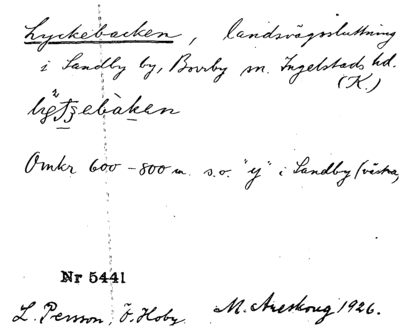 Lyckebacken, landsvägssluttning
i Sandby by, Borrby sn. Ingelstads hd.
(K.)
Omkr 600-800 m. s.o. "y" i Sandby (västra)
Nr 5441
L. Persson, Ö. Hoby. M. Areskoug 1926.